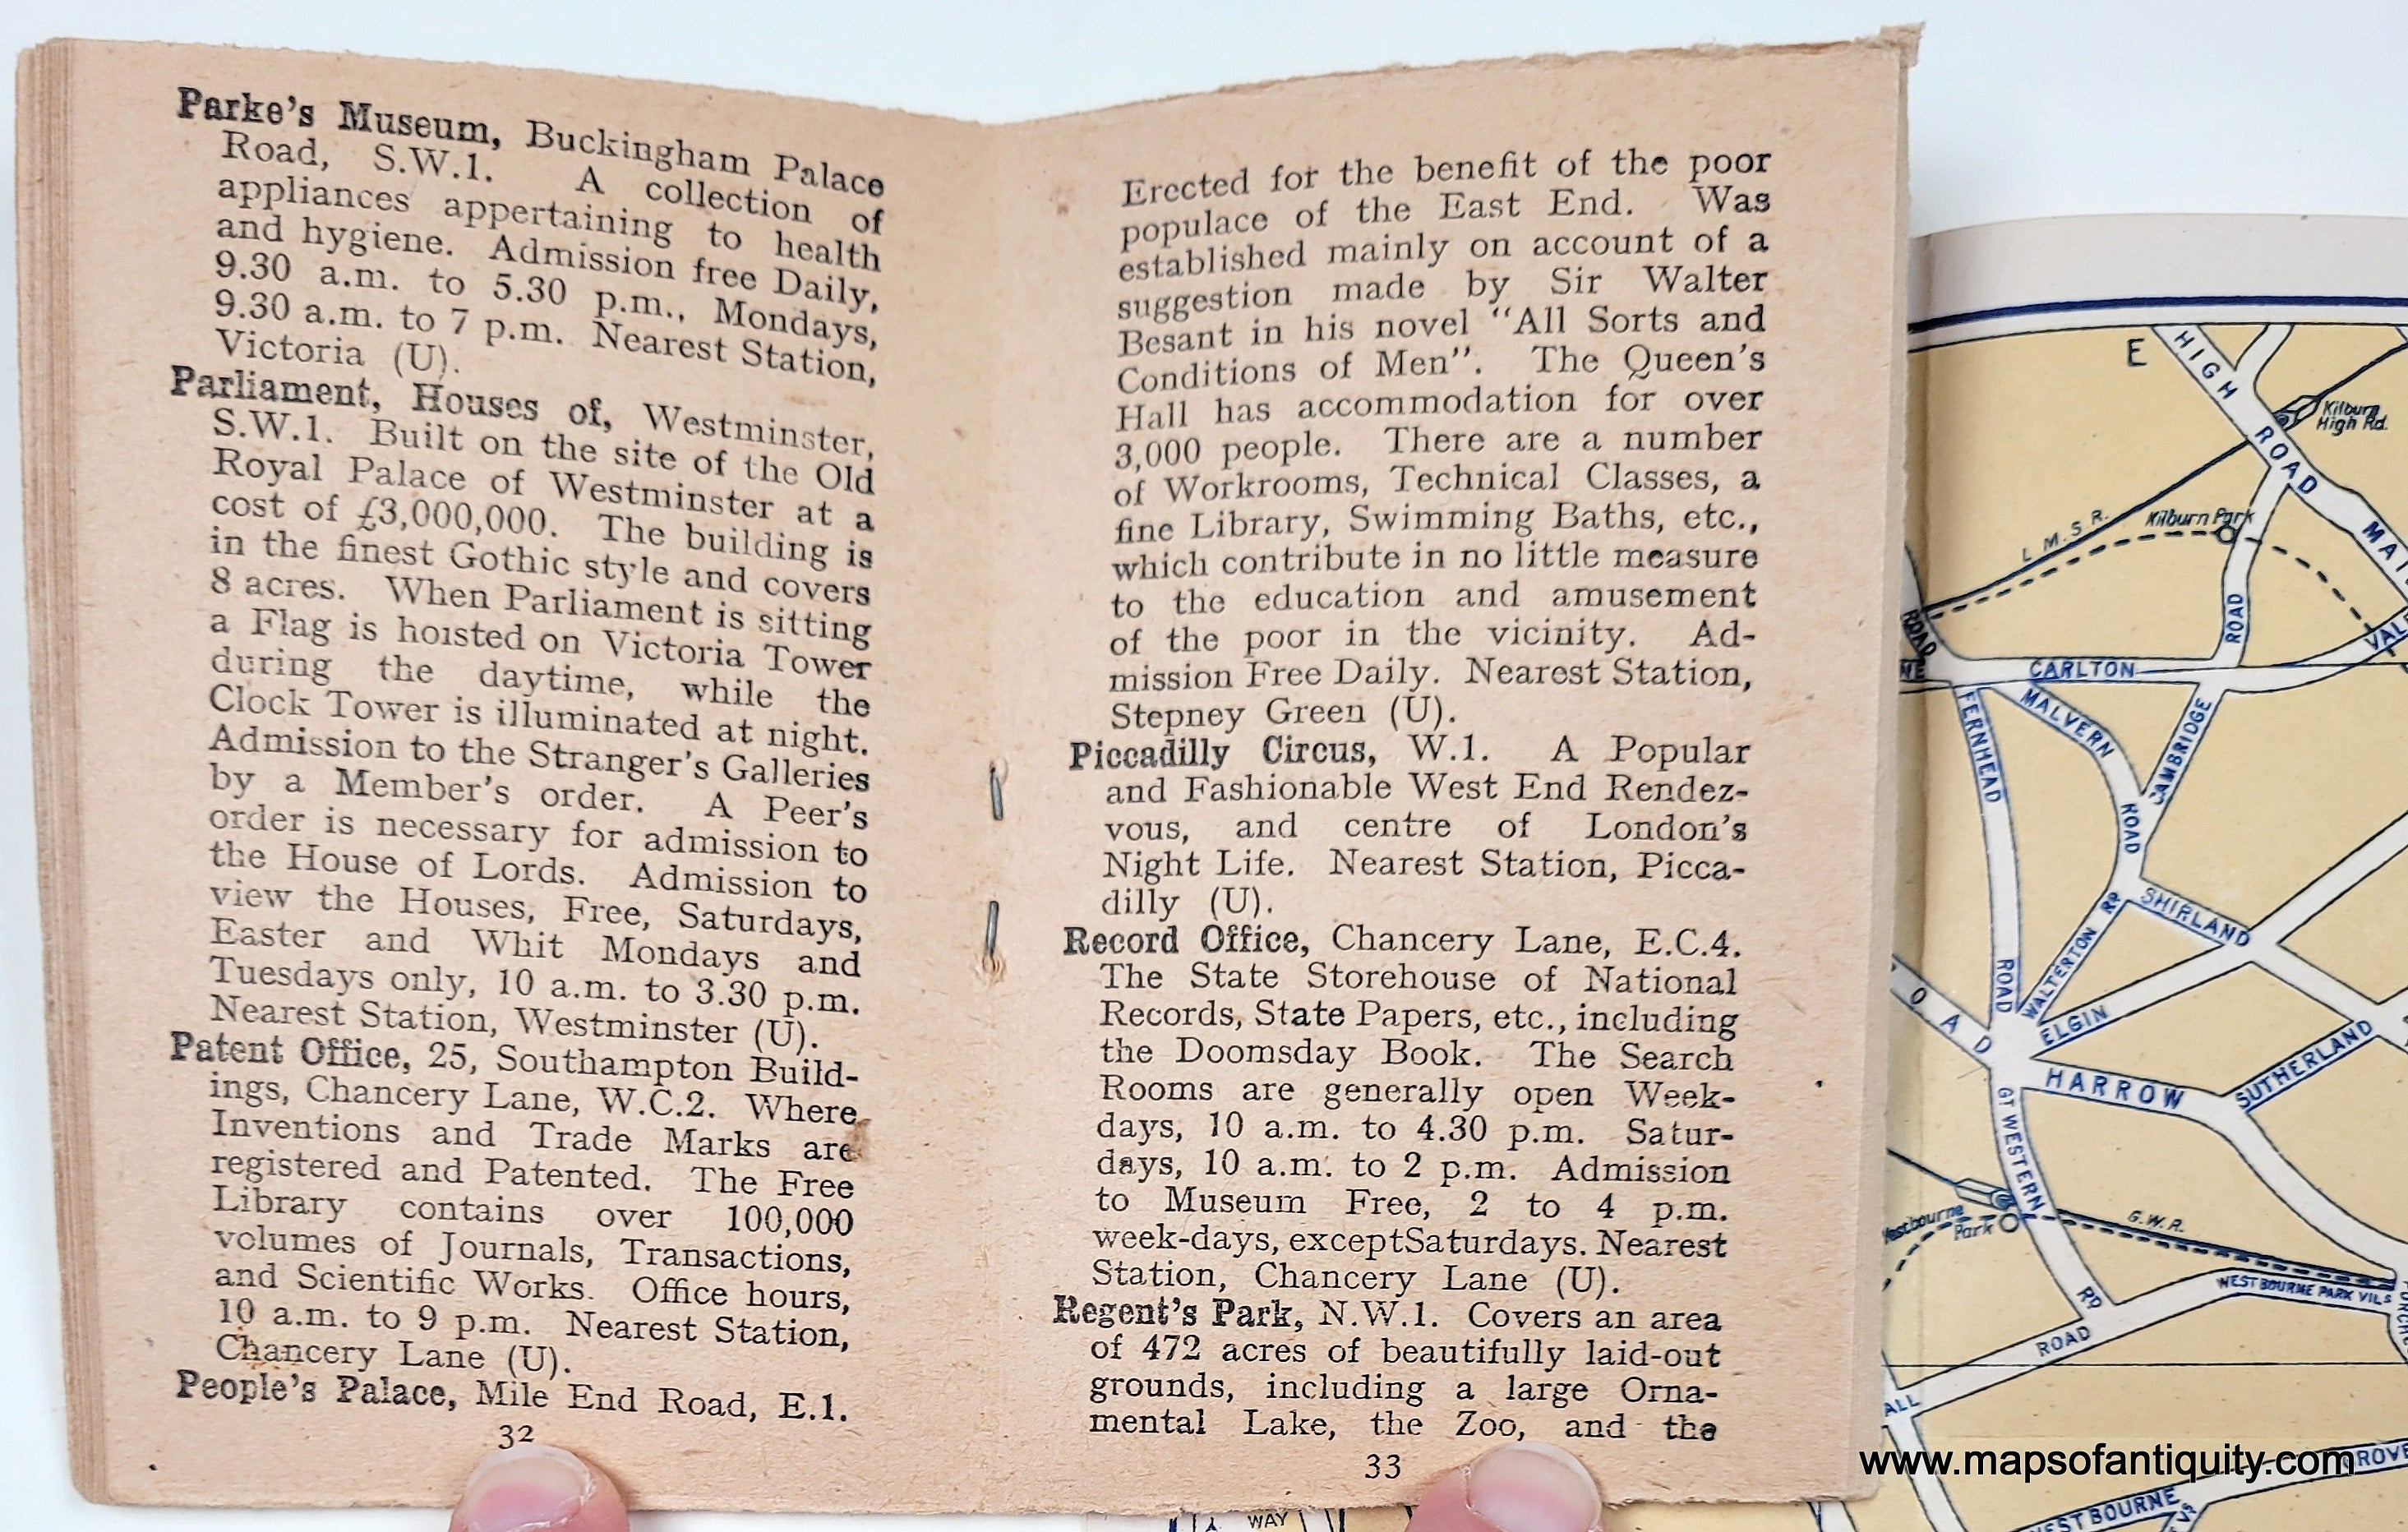 Parke's Museum, Buckingham Palace
Road, S.W.1. A collection of
appliances appertaining to health
and hygiene. Admission free Daily,
9.30 a.m. to 5.30 p.m., Mondays,
9.30 a.m. to 7 p.m. Nearest Station,
Victoria (U).
Parliament, Houses of, Westminster,
S.W.1. Built on the site of the Old
Royal Palace of Westminster at a
cost of £3,000,000. The building is
in the finest Gothic style and covers
8 acres. When Parliament is sitting
a Flag is hoisted on Victoria Tower
during the daytime, while the
Clock Tower is illuminated at night.
Admission to the Stranger's Galleries
by a Member's order. A Peer's
order is necessary for admission to
the House of Lords. Admission to
view the Houses, Free, Saturdays,
Easter and Whit Mondays and
Tuesdays only, 10 a.m. to 3.30 p.m.
Nearest Station, Westminster (U).
Patent Office, 25, Southampton Build-
ings, Chancery Lane, W.C.2. Where
Inventions and Trade Marks are
registered and Patented. The Free
Library contains over 100,000
volumes of Journals, Transactions,
and Scientific Works. Office hours,
10 a.m. to 9 p.m. Nearest Station,
Chancery Lane (U).
People's Palace, Mile End Road, E.1.
32
Erected for the benefit of the poor
populace of the East End. Was
established mainly on account of a
suggestion made by Sir Walter
Besant in his novel "All Sorts and
Conditions of Men". The Queen's
Hall has accommodation for over
3,000 people. There are a number
of Workrooms, Technical Classes, a
fine Library, Swimming Baths, etc.,
which contribute in no little measure
to the education and amusement
of the poor in the vicinity. Ad-
mission Free Daily. Nearest Station,
Stepney Green (U).
Piccadilly Circus, W.1. A Popular
and Fashionable West End Rendez-
vous, and centre of London's
Night Life. Nearest Station, Picca-
dilly (U).
Record Office, Chancery Lane, E.C.4.
The State Storehouse of National
Records, State Papers, etc., including
the Doomsday Book. The Search
Rooms are generally open Week-
days, 10 a.m. to 4.30 p.m. Satur-
days, 10 a.m. to 2 p.m. Admission
to Museum Free, 2 to 4 p.m.
week-days, exceptSaturdays. Nearest
Station, Chancery Lane (U).
Regent's Park, N.W.1. Covers an area
of 472 acres of beautifully laid-out
grounds, including a large Orna-
mental Lake, the Zoo, and the
33
E
HIGH ROAD
Kilburn
High Rd.
L.M.S.R.
Kilburn Park
ROAD
ROAD
CARLTON
FERNHEAD
ROAD
MALVERN
ROAD
CAMBRIDGE
SHIRLAND
WALTERTON RD
ELGIN
SUTHERLAND
HARROW
GT WESTERN
RD
Westbourne
Park
G.W.R.
WESTBOURNE PARK VILS
ROAD
WAY
www.mapsofantiquity.com